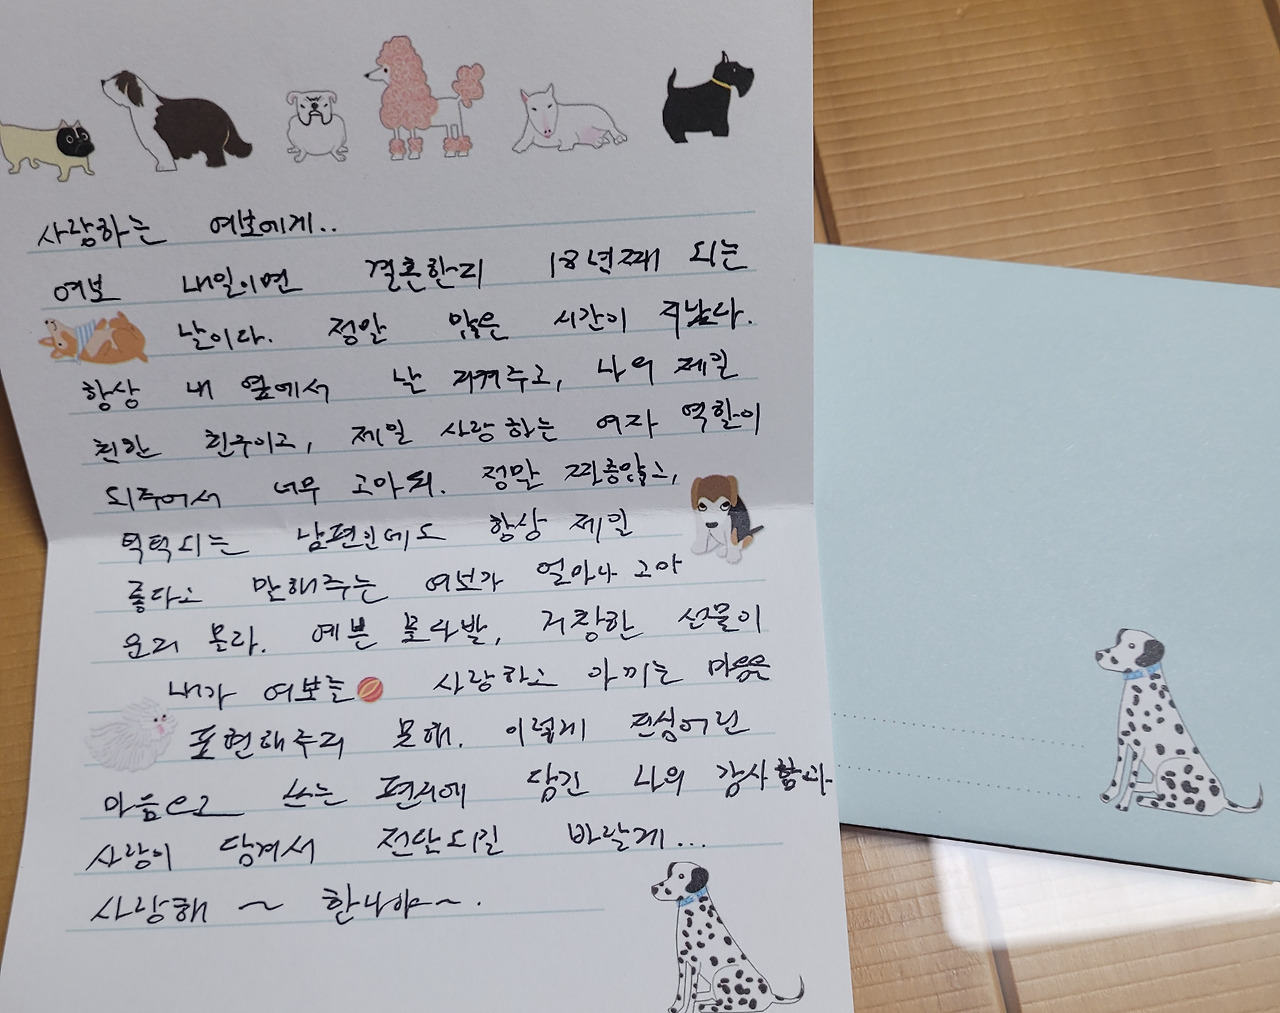 사랑하는 여보에게..
여보 내일이면 결혼한지 18년째 되는
날이다. 정말 많은 시간이 지났다.
항상 내 옆에서 날 지켜주고, 나의 제일
친한 친구이고, 제일 사랑하는 여자 역할이
되주어서 너무 고마워. 정말 짜증많고,
틱틱되는 남편인데도 항상 제일
좋다고 말해주는 여보가 얼마나 고마
운지 몰라. 예쁜 꽃다발, 거창한 선물이
내가 여보를 사랑하고 아끼는 마음을
표현해주지 못해. 이렇게 진심어린
마음으로 쓰는 편지에 담긴 나의 감사함과
사랑이 담겨서 전달되길 바랄게...
사랑해 ~ 한나야~.